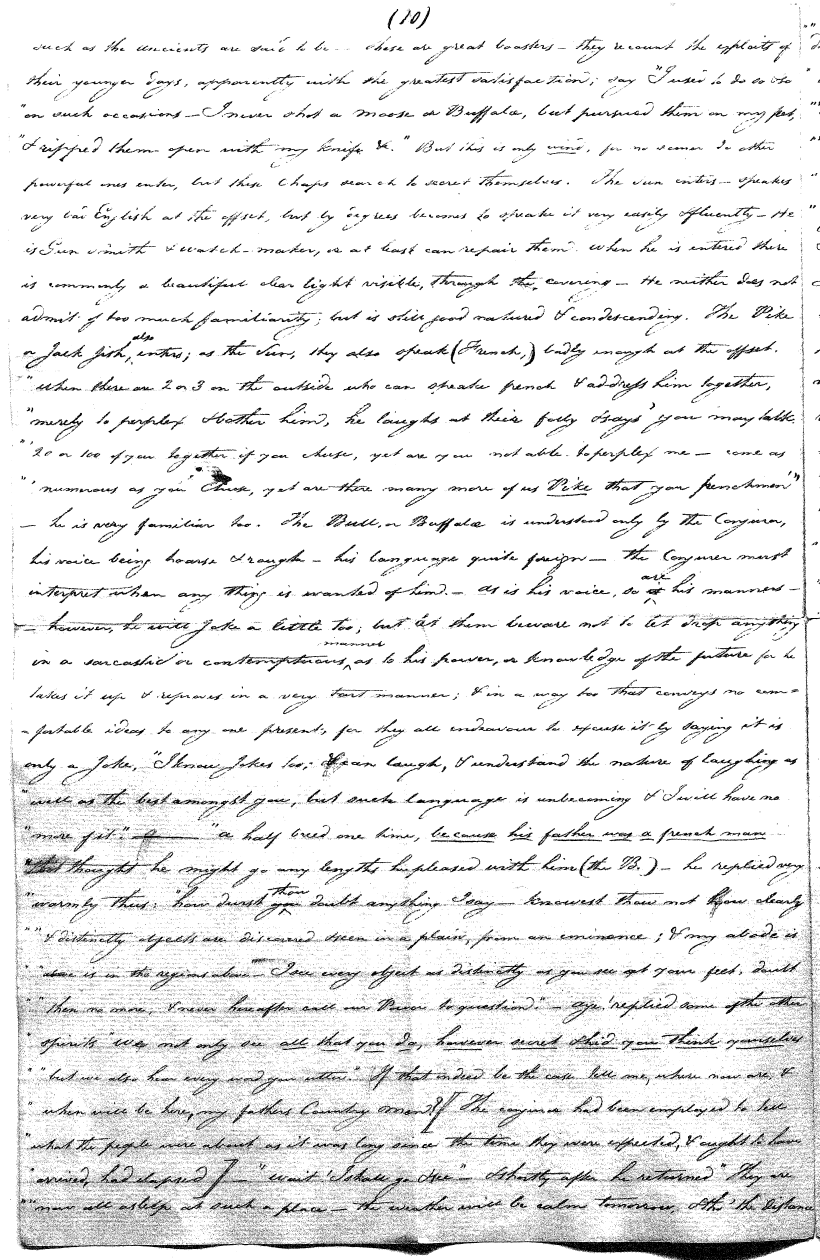 (10)
such as the ancients are said to be -- these are great boasters — they recount the exploits of
their younger days, apparently with the greatest satisfaction; say "I used to do so & so
"on such occasions — I never shot a moose or Buffaloe, but pursued them on my feet,
"& ripped them open with my knife &." But this is only wind, for no sooner do other
powerful ones enter, but these Chaps search to secret themselves. The Sun enters — speaks
very bad English at the offset, but by degrees becomes to speak it very easily & fluently — He
is Gun Smith & watch-maker, or at least can repair them. When he is entered there
is commonly a beautiful clear light visible, through the covering — He neither does not
admit of too much familiarity; but is still good natured & condescending. The Pike
or Jack fish, also enters; as the Sun, they also speak (French,) badly enough at the offset.
"When there are 2 or 3 on the outside who can speak french & address him together,
"merely to perplex & bother him, he laughs at their folly & says 'you may talk
"'20 or 100 of you together if you chuse, yet are you not able to perplex me — come as
"'numerous as you chuse, yet are there many more of us Pike that you frenchmen'"
— he is very familiar too. The Bull, or Buffaloe is understood only by the Conjuror,
his voice being hoarse & rough — his language quite foreign — the Conjurer must
interpret when any thing is wanted of him. — as is his voice, so are his manners —
— however, he will Joke a little too; but let them beware not to let drop anything
in a sarcastic or contemptuous manner, as to his power, or knowledge of the future for he
takes it up & reproves in a very tart manner; & in a way too that conveys no com=
=fortable ideas to any one present, for they all endeavour to excuse it by saying it is
only a Joke, "I know Jokes too; I can laugh, & understand the nature of laughing as
"well as the best amongst you, but such language is unbecoming & I will have no
"more of it." "a half breed one time, because his father was a french man
thought he might go any lengths he pleased with him (the B.) — he replied very
"warmly thus: "how durst thou doubt anything I say — knowest thou not how clearly
""& distinctly objects are discovered & seen in a plain, from an eminence; & my abode is
" is in the regions above — I see every object as distinctly as you see at your feet, doubt
"" then no more, & never hereafter call our Power to question." — "aye! replied some of the other
" spirits "We not only see all that you do, however secret & hid you think yourselves
""but we also hear every word you utter". If that indeed be the case tell me, where now are, &
" when will be here, my fathers Country men? [The conjuror had been employed to tell
"what the people were about as it was long since the time they were expected, & ought to have
"arrived, had elapsed] — "wait! I shall go & see" — & shortly after he returned "They are
""now all asleep at such a place — the weather will be calm tomorrow, & tho' the distance